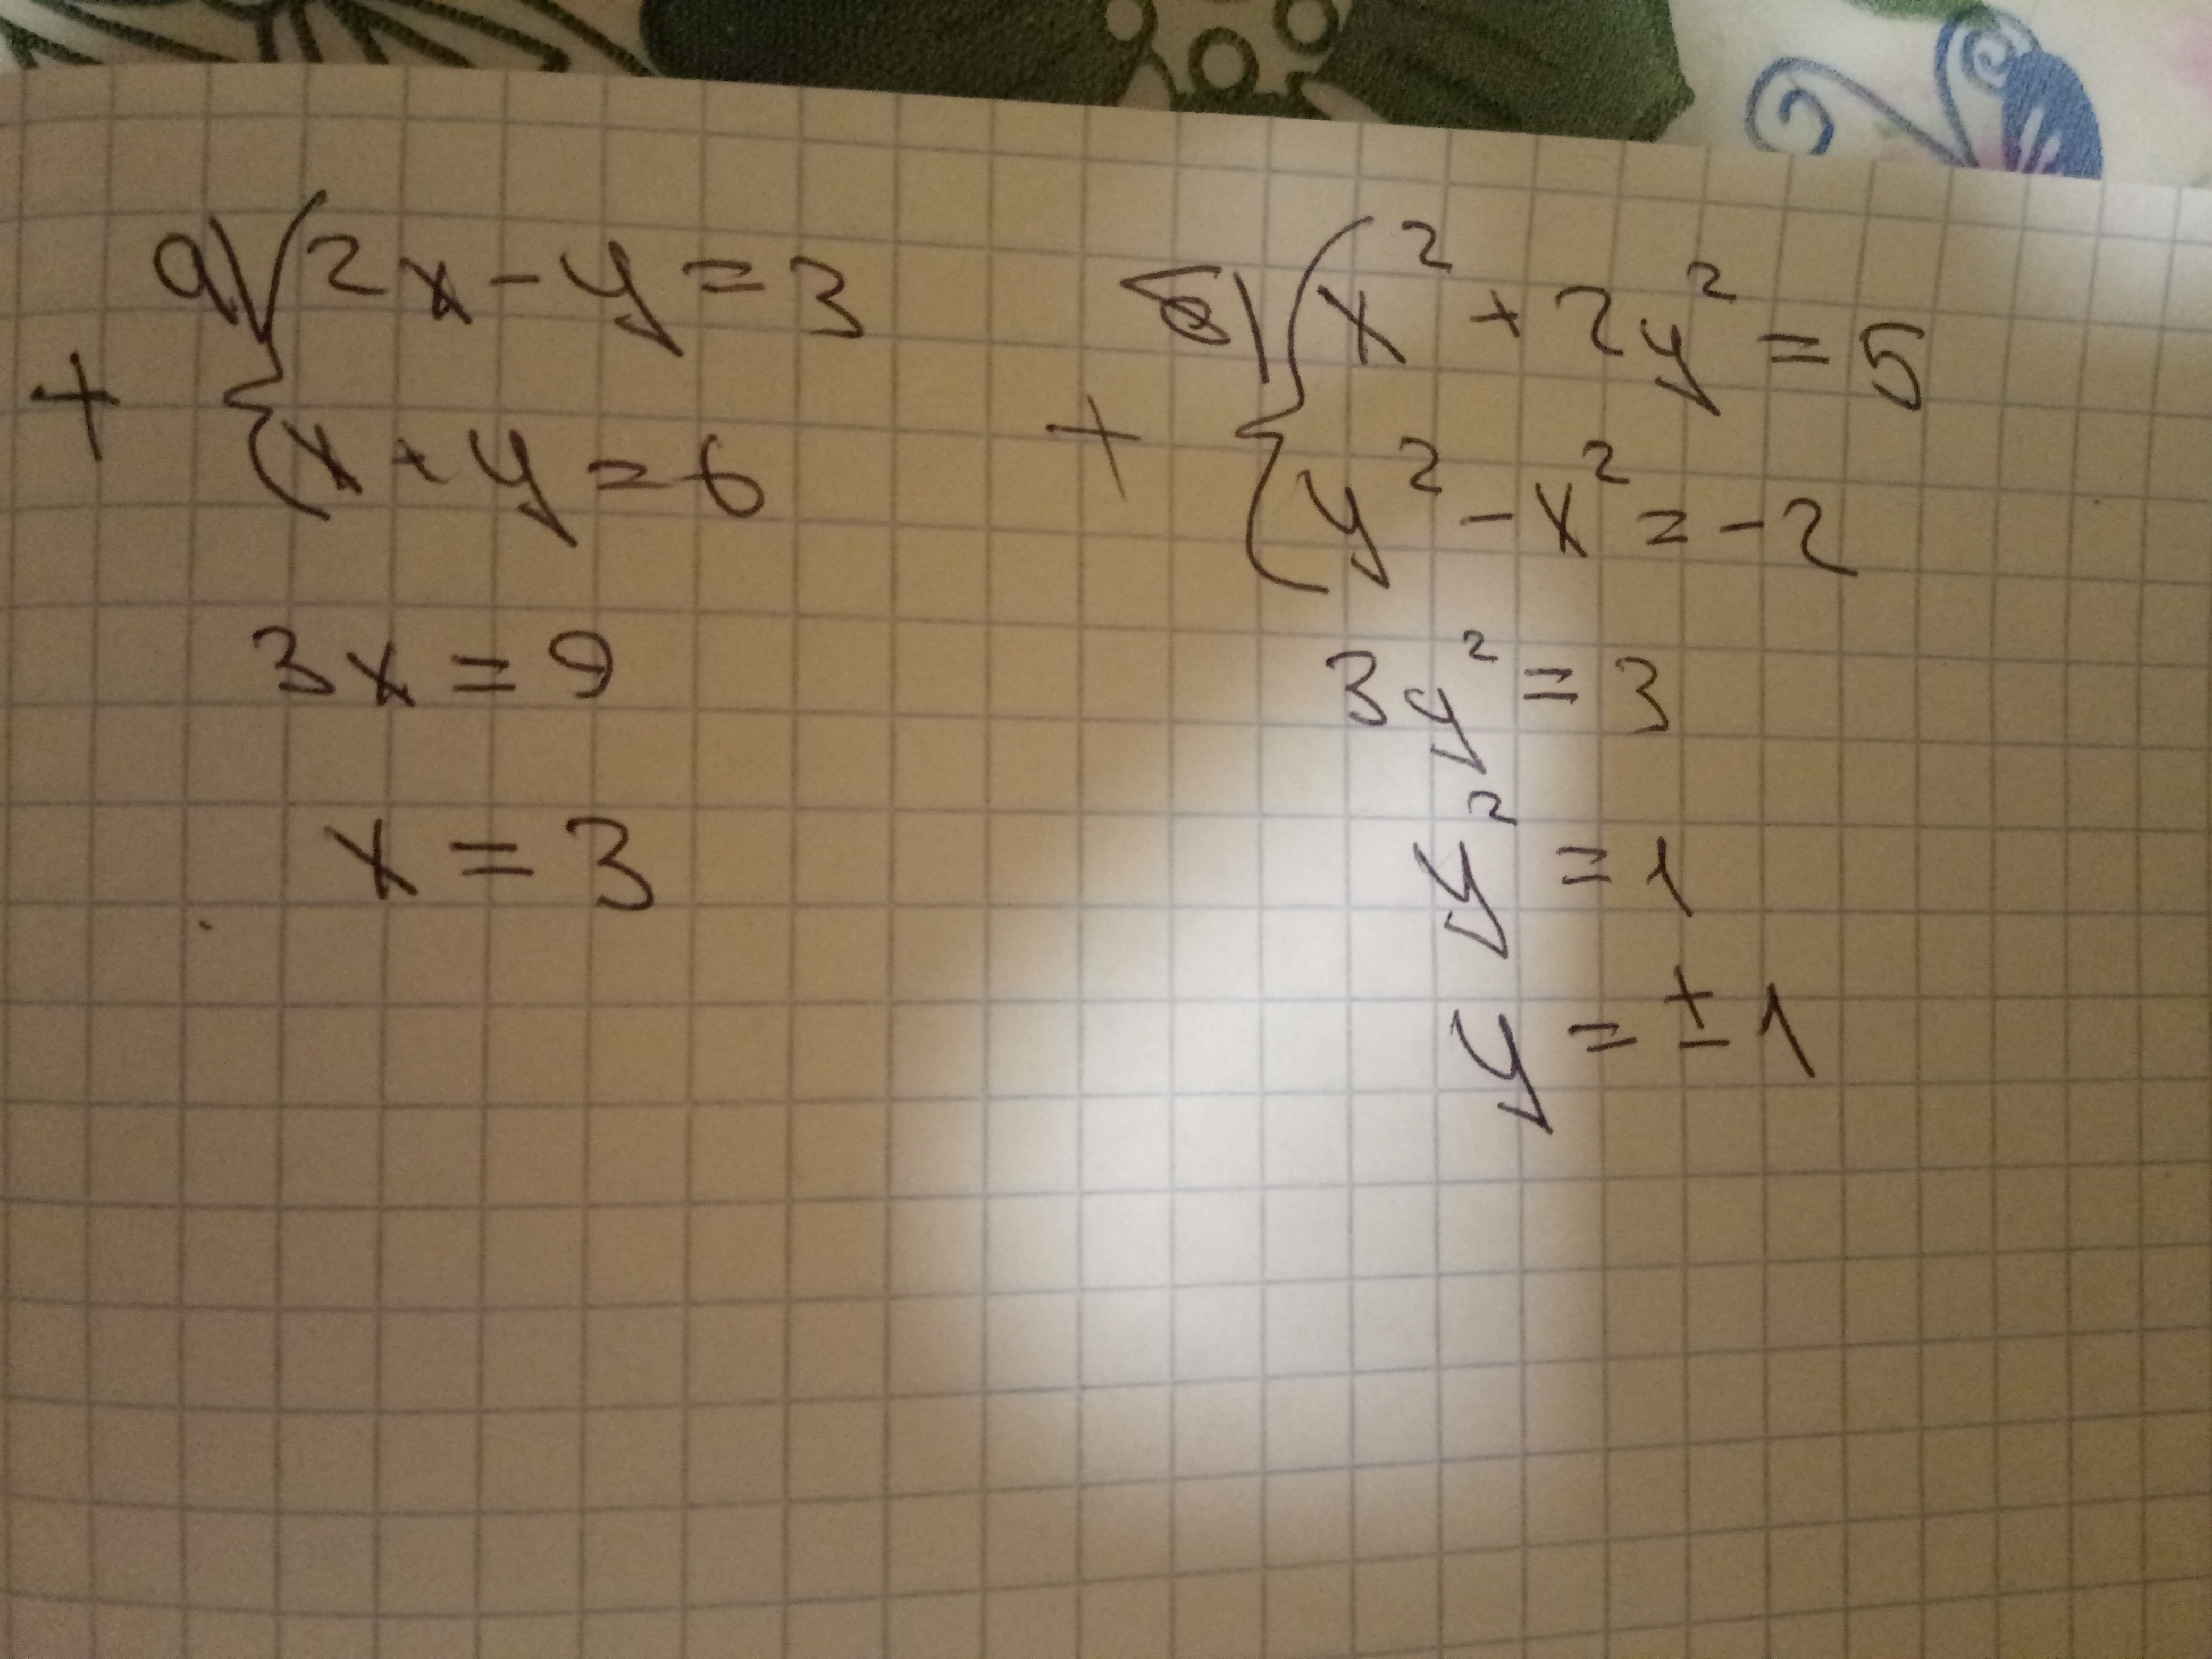 a) { 2x - y = 3
+
x + y = 6
3x = 9
x = 3
б) { x² + 2y² = 5
+
y² - x² = -2
3y² = 3
y² = 1
y = ± 1